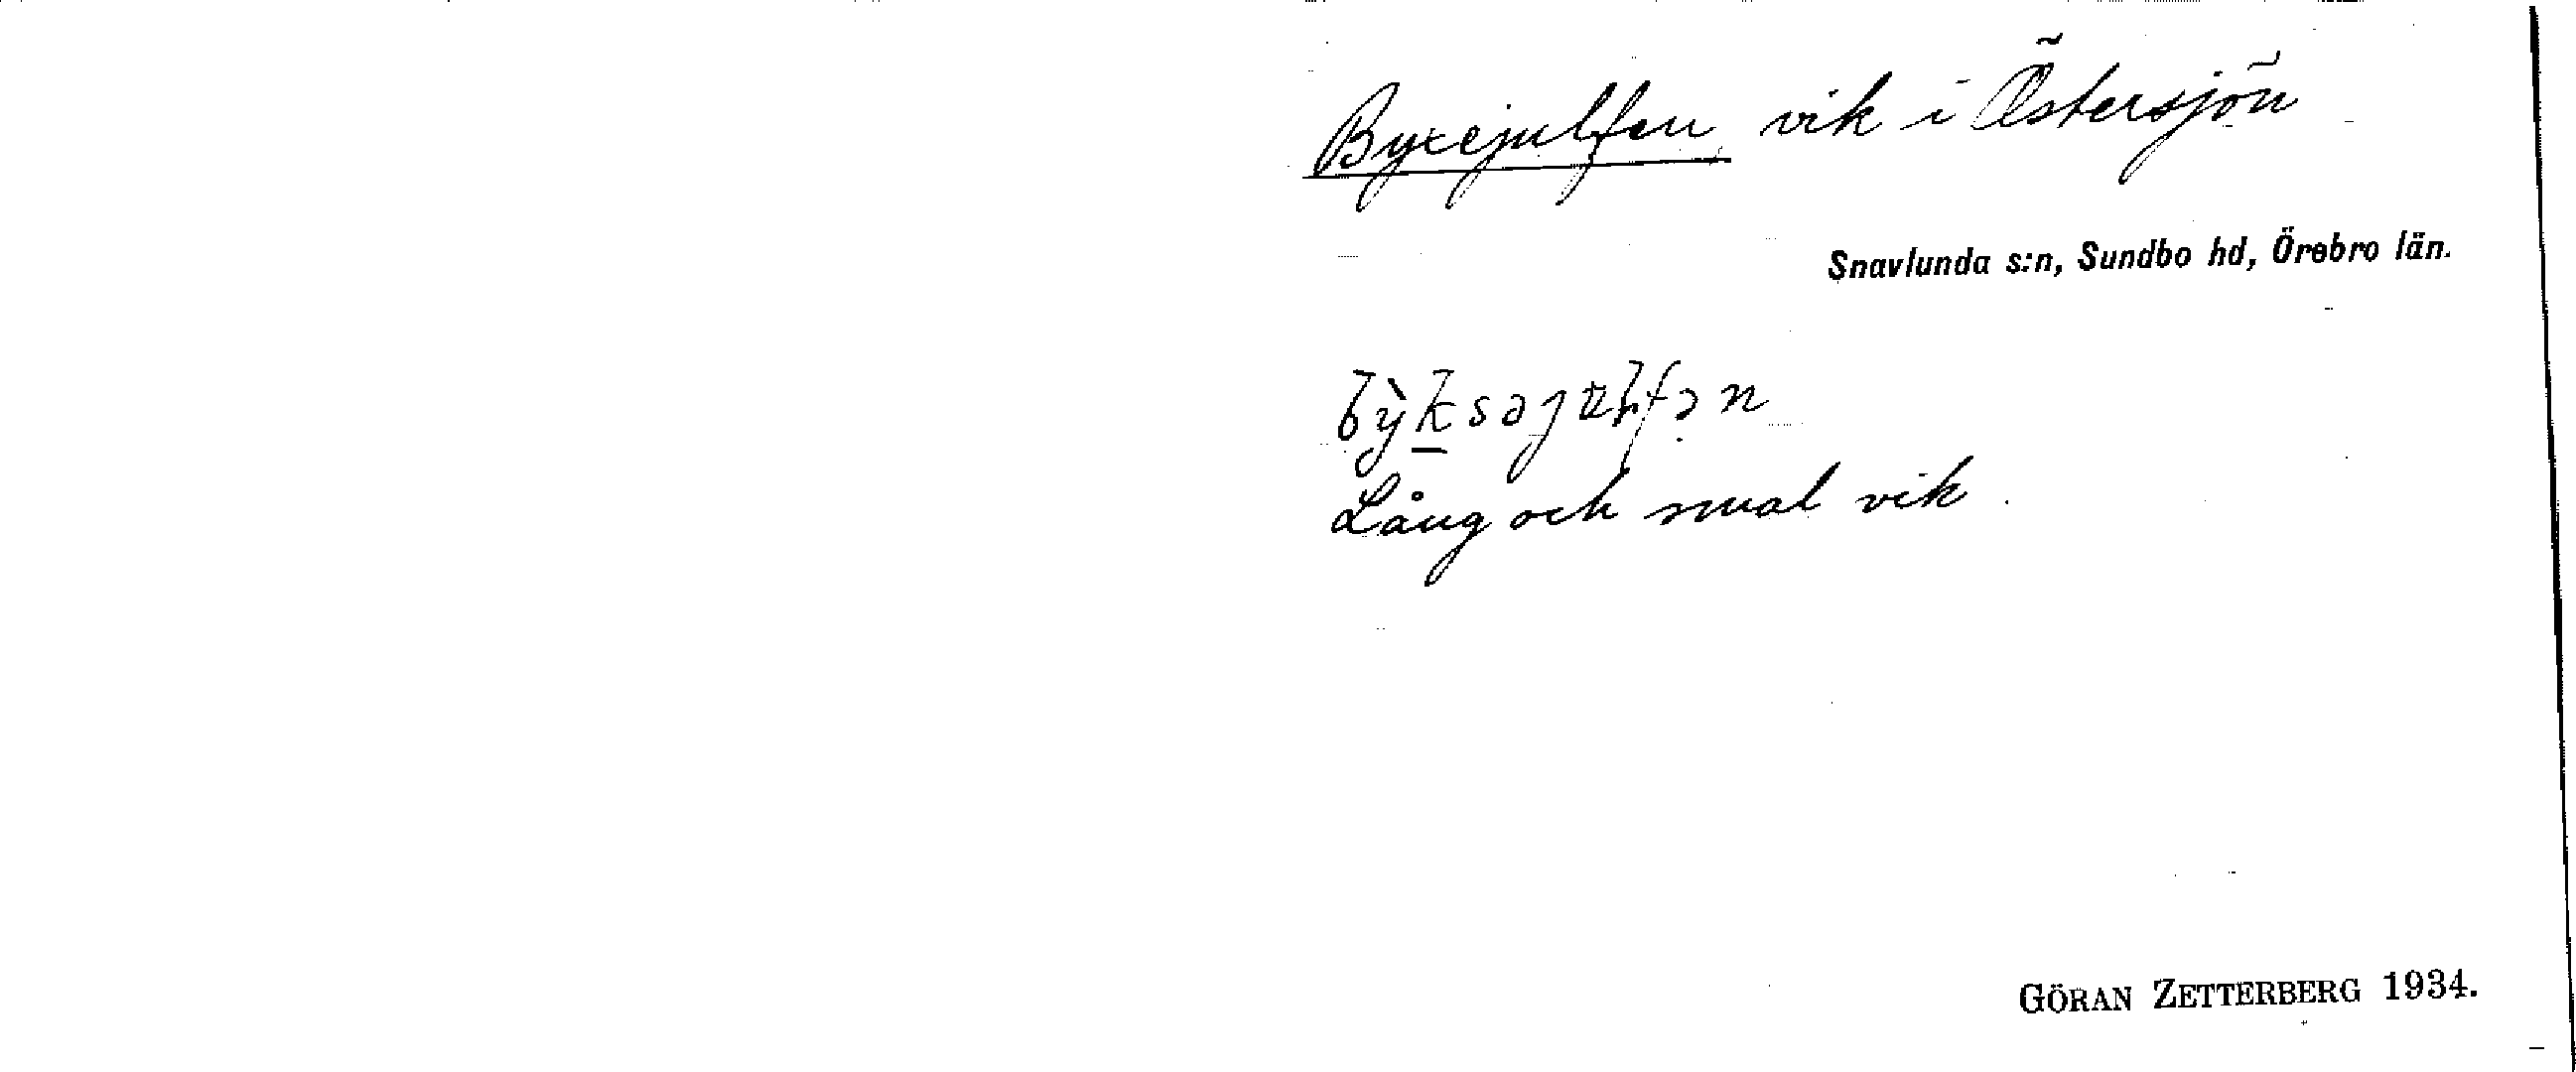 Byxejulfen vik i Östersjön
Snavlunda s:n, Sundbo hd, Örebro län.
Lång och smal vik.
GÖRAN ZETTERBERG 1934.